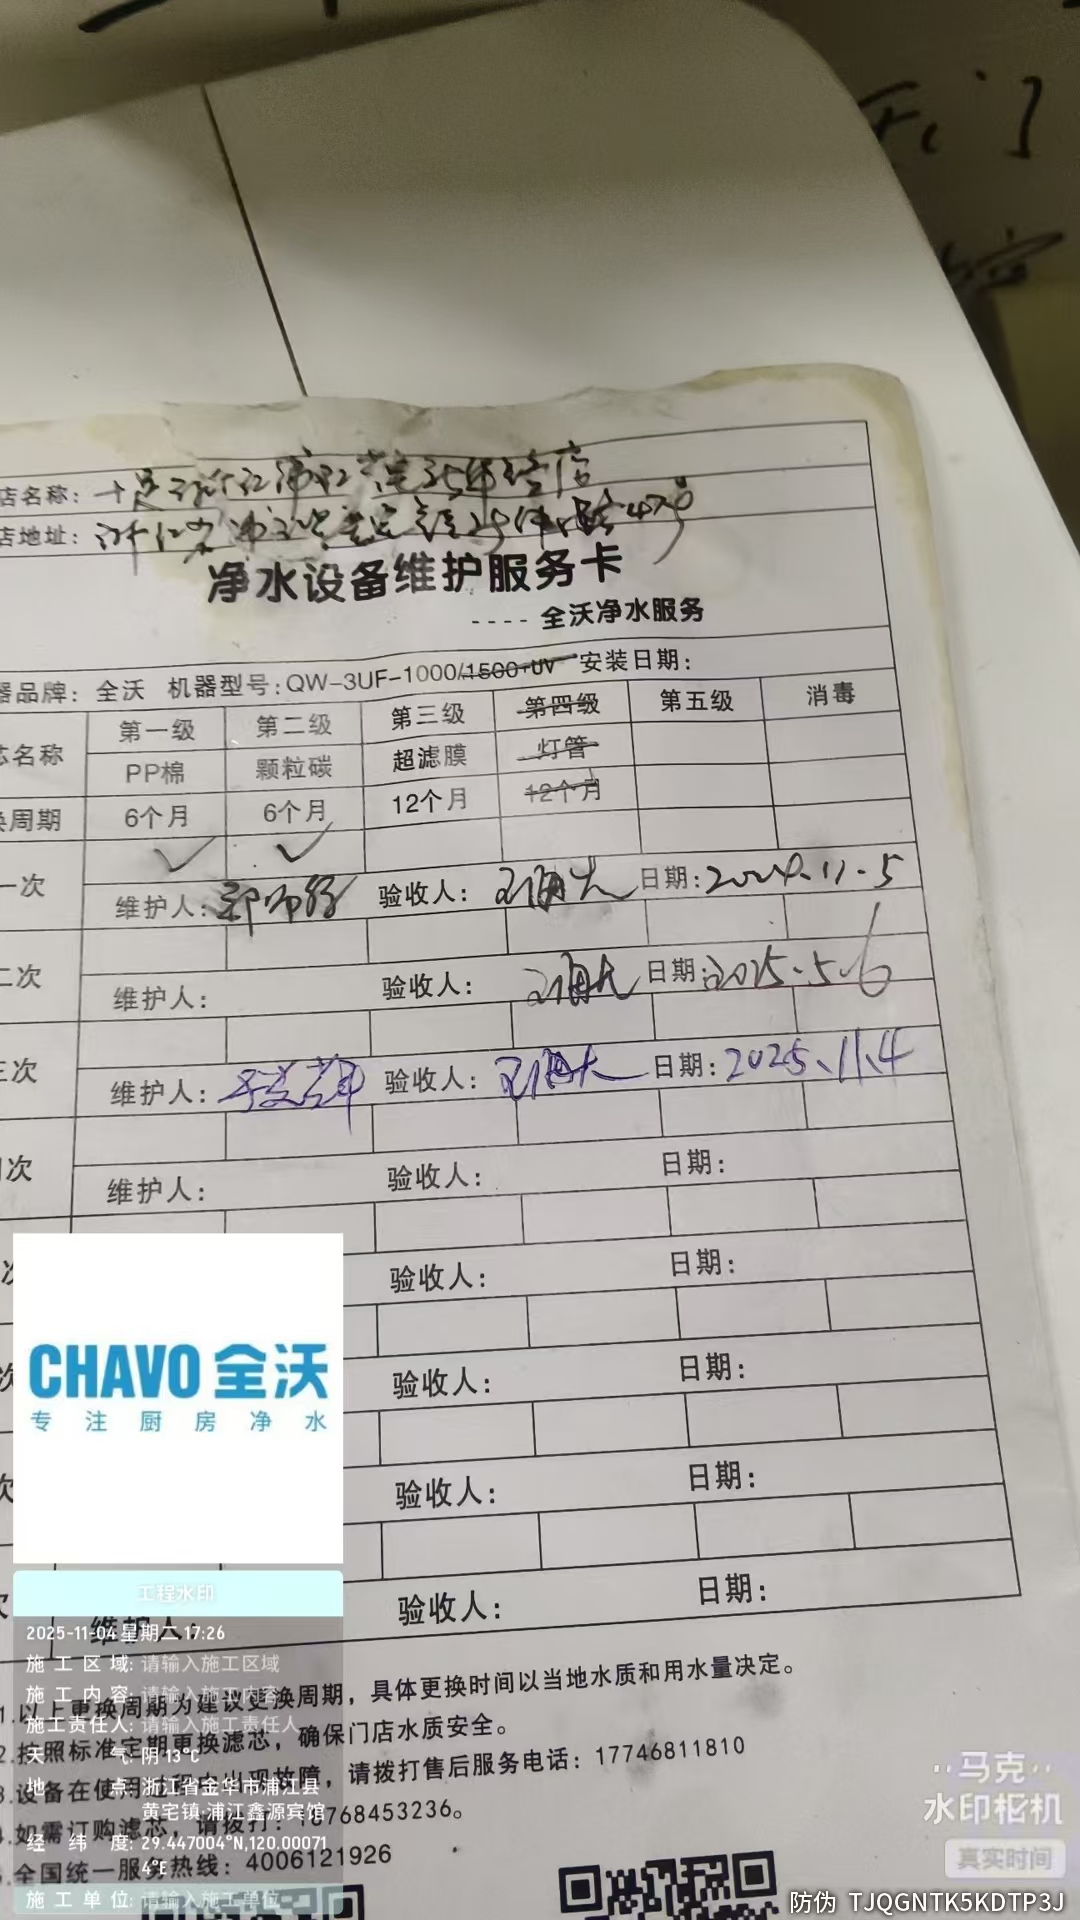 店名称：十足浙江浦江黄宅
店地址：浙江省 47号
净水设备维护服务卡
---- 全沃净水服务
器品牌：全沃 机器型号：QW-3UF-1000/1500+UV 安装日期：
芯名称 第一级 第二级 第三级 第四级 第五级 消毒
PP棉 颗粒碳 超滤膜 灯管
换周期 6个月 6个月 12个月 12个月
一次 ✓ ✓
维护人：郑师傅 验收人： 日期：2024.11.5
二次
维护人： 验收人： 日期：2025.5.6
三次
维护人： 验收人： 日期：2025.11.4
次
维护人： 验收人： 日期：
次
验收人： 日期：
次
验收人： 日期：
次
验收人： 日期：
次
维护人： 验收人： 日期：
1.以上更换周期为建议更换周期，具体更换时间以当地水质和用水量决定。
2.按照标准定期更换滤芯，确保门店水质安全。
3.设备在使用过程中出现故障，请拨打售后服务电话：17746811810
4.如需订购滤芯，请拨打：18768453236。
全国统一服务热线：4006121926
CHAVO 全沃
专注厨房净水
工程水印
2025-11-04 星期二 17:26
施工区域：请输入施工区域
施工内容：请输入施工内容
施工责任人：请输入施工责任人
天气：阴 13°C
地点：浙江省金华市浦江县
黄宅镇·浦江鑫源宾馆
经纬度：29.447004°N,120.00071
4°E
施工单位：请输入施工单位
马克
水印相机
真实时间
防伪 TJQGNTK5KDTP3J